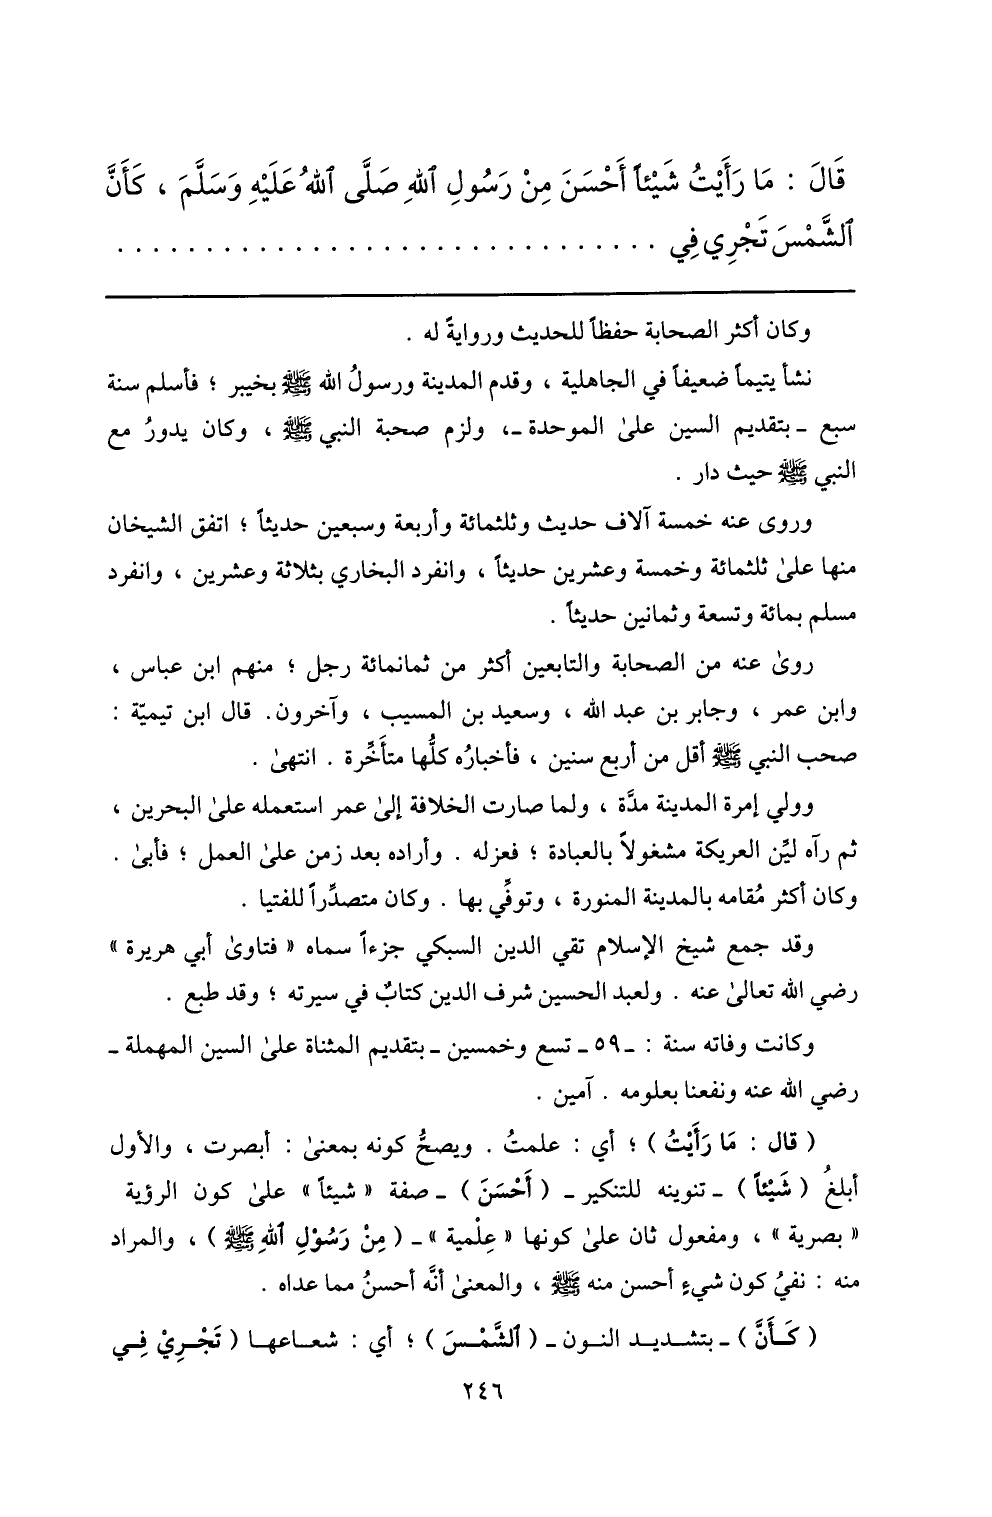 قَالَ : مَا رَأَيْتُ شَيْئاً أَحْسَنَ مِنْ رَسُولِ ٱللهِ صَلَّى ٱللهُ عَلَيْهِ وَسَلَّمَ ، كَأَنَّ
ٱلشَّمْسَ تَجْرِي فِي . . . . . . . . . . . . . . . . . . . . . . . . . . . . . . .
وكان أكثر الصحابة حفظاً للحديث وروايةً له .
نشأ يتيماً ضعيفاً في الجاهلية ، وقدم المدينة ورسولُ الله ﷺ بخيبر ؛ فأسلم سنة
سبع ـ بتقديم السين علىٰ الموحدة ـ، ولزم صحبة النبي ﷺ ، وكان يدورُ مع
النبي ﷺ حيث دار .
وروى عنه خمسة آلاف حديث وثلثمائة وأربعة وسبعين حديثاً ؛ اتفق الشيخان
منها علىٰ ثلثمائة وخمسة وعشرين حديثاً ، وانفرد البخاري بثلاثة وعشرين ، وانفرد
مسلم بمائة وتسعة وثمانين حديثاً .
روىٰ عنه من الصحابة والتابعين أكثر من ثمانمائة رجل ؛ منهم ابن عباس ،
وابن عمر ، وجابر بن عبد الله ، وسعيد بن المسيب ، وآخرون. قال ابن تيميّة :
صحب النبي ﷺ أقل من أربع سنين ، فأخبارُه كلُّها متأخِّرة . انتهىٰ .
وولي إمرة المدينة مدَّة ، ولما صارت الخلافة إلىٰ عمر استعمله علىٰ البحرين ،
ثم رآه ليِّن العريكة مشغولاً بالعبادة ؛ فعزله . وأراده بعد زمن علىٰ العمل ؛ فأبىٰ .
وكان أكثر مُقامه بالمدينة المنورة ، وتوفِّي بها . وكان متصدِّراً للفتيا .
وقد جمع شيخ الإسلام تقي الدين السبكي جزءاً سماه « فتاوىٰ أبي هريرة »
رضي الله تعالىٰ عنه . ولعبد الحسين شرف الدين كتابٌ في سيرته ؛ وقد طبع .
وكانت وفاته سنة : ـ ٥٩ ـ تسع وخمسين ـ بتقديم المثناة علىٰ السين المهملة ـ
رضي الله عنه ونفعنا بعلومه . آمين .
( قال : مَا رَأَيْتُ ) ؛ أي : علمتُ . ويصحُّ كونه بمعنىٰ : أبصرت ، والأول
أبلغُ ( شَيْئاً ) ـ تنوينه للتنكير ـ ( أَحْسَنَ ) ـ صفة « شيئاً » علىٰ كون الرؤية
« بصرية » ، ومفعول ثان علىٰ كونها « عِلْمية » ـ ( مِنْ رَسُوْلِ ٱللهِ ﷺ ) ، والمراد
منه : نفيُ كون شيءٍ أحسن منه ﷺ ، والمعنىٰ أنَّه أحسنُ مما عداه .
( كَــأَنَّ ) ـ بتشــديــد النــون ـ ( ٱلشَّمْــسَ ) ؛ أي : شعــاعهــا ( تَجْــرِيْ فِــي
٢٤٦